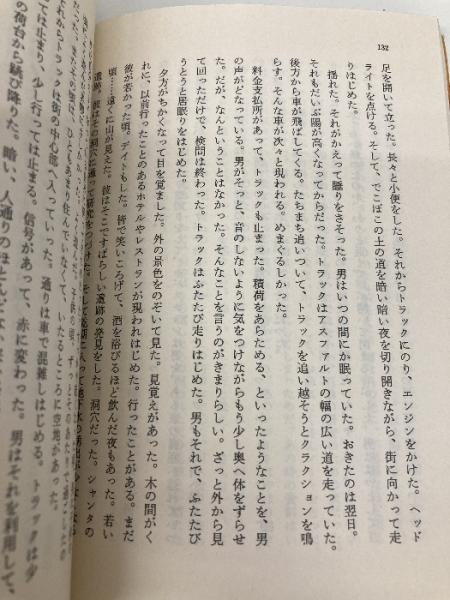 132
足を開いて立った。長々と小便をした。それからトラックにのり、エンジンをかけた。ヘッド
ライトを点ける。そして、でこぼこの土の道を暗い暗い夜を切り開きながら、街に向かって走
りはじめた。
揺れた。それがかえって睡りをさそった。男はいつの間にか眠っていた。おきたのは翌日。
それもだいぶ陽が高くなってからだった。トラックはアスファルトの幅の広い道を走っていた。
後方から車が飛ばしてくる。たちまち追いついて、トラックを追い越そうとクラクションを鳴
らす。そんな車が次々と現われる。めまぐるしかった。
料金支払所があって、トラックも止まった。積荷をあらためる、といったようなことを、男
の声がどなっている。男がそっと、音のしないように気をつけながらもう少し奥へ体をずらせ
た。だが、なんということはなかった。そんなことを言うのがきまりらしい。ざっと外から見
て回っただけで、検問は終わった。トラックはふたたび走りはじめた。男もそれで、ふたたび
うとうと居眠りをはじめた。
夕方がちかくなって目を覚ました。外の景色をのぞいて見た。見覚えがあった。木の間がく
れに、以前行ったことのあるホテルやレストランが現われはじめた。行ったことがある。まだ
彼が若かった頃。デイトもした。皆で笑いころげて、酒を浴びるほど飲んだ夜もあった。若い
頃…遠くに山が見えた。彼はそこですばらしい遺跡の発見をした。洞穴だった。シャンタの
遺跡。彼はその洞穴に通って研究をつづけた。そして
それからトラックは街の中心部に入っていった。通りは車で混雑しはじめる。トラックは少
ては止まり、少し行っては止まる。信号があって、赤に変わった。男はそれを利用して、
の荷台から跳び降りた。暗い、人通りのほとんどない